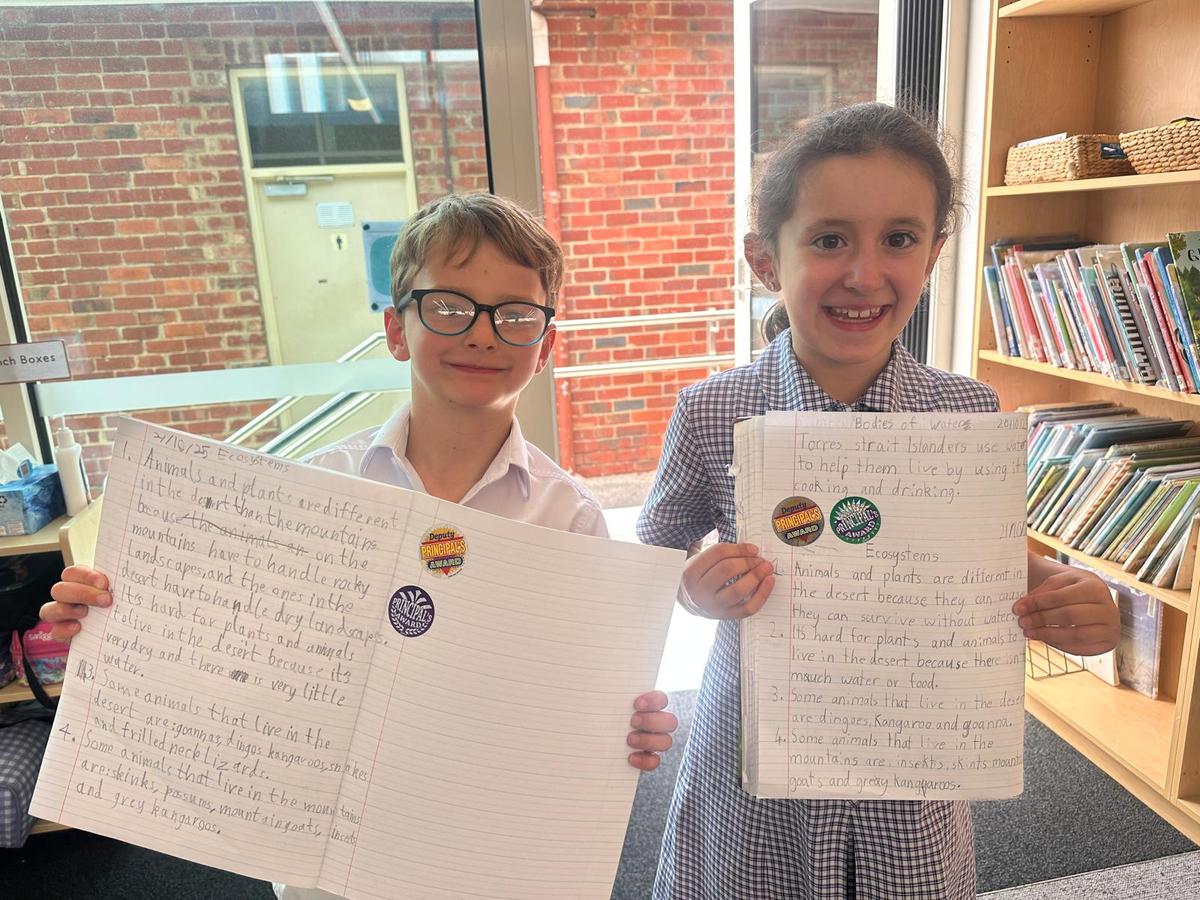 nch Boxes
21/10/25 Ecosystems
1. Animals and plants are different
in the desert than the mountains
because the animals on on the
mountains have to handle rocky
landscapes, and the ones in the
desert have to handle dry landscapes.
It's hard for plants and animals
to live in the desert because its
very dry and there is very little
water.
3. Some animals that live in the
desert are: goannas, dingos kangaroos, snakes
and frilled neck lizards.
4. Some animals that live in the mountains
are: skinks, possums, mountain goats, insects
and grey kangaroos.
Deputy
PRINCIPAL'S
AWARD
PRINCIPAL'S
AWARD
Bodies of Water
Torres strait Islanders use water
to help them live by using it
cooking and drinking.
Deputy
PRINCIPAL'S
AWARD
PRINCIPAL'S
AWARD
Ecosystems
1. Animals and plants are different in
the desert because they can cause
they can survive without water
2. Its hard for plants and animals to
live in the desert because there isn't
mauch water or food.
3. Some animals that live in the desert
are dingoes, Kangaroo and goanna.
4. Some animals that live in the
mountains are, insekts, skints mount
goats and greay kangparoos.